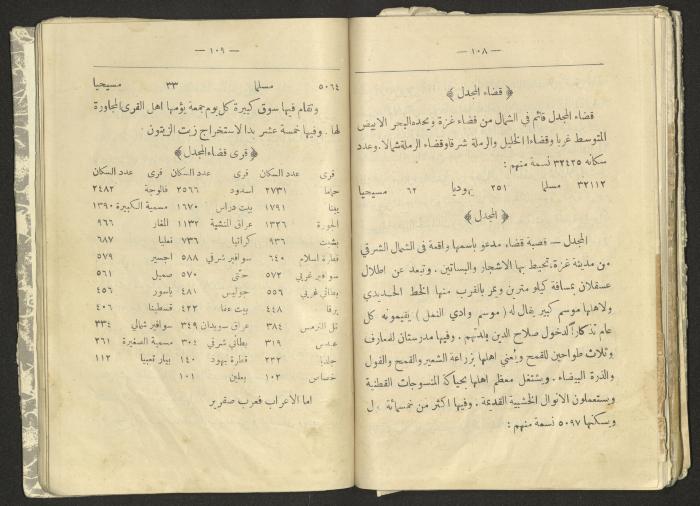 — ١٠٨ —
﴿ قضاء المجدل ﴾
قضاء المجدل قائم في الشمال من قضاء غزة ويحده البحر الابيض
المتوسط غربا وقضاءا الخليل والرملة شرقا وقضاء الرملة شمالا . وعدد
سكانه ٣٢٤٢٥ نسمة منهم :
٣٢١١٢ مسلما ٢٥١ يهوديا ٦٢ مسيحيا
﴿ المجدل ﴾
المجدل — قصبة قضاء مدعو باسمها واقعة في الشمال الشرقي
من مدينة غزة ، تحيط بها الاشجار والبساتين . وتبعد عن اطلال
عسقلان بمسافة كيلو مترين ويمر بالقرب منها الخط الحديدي
ولاهلها موسم كبير يقال له ( موسم وادي النمل ) يقيمونه كل
عام تذكارا لدخول صلاح الدين بلدتهم . وفيها مدرستان للمعارف
وثلاث طواحين للقمح ويُعنى اهلها بزراعة الشعير والقمح والفول
والذرة البيضاء . ويشتغل معظم اهلها بحياكة المنسوجات القطنية
ويستعملون الانوال الخشبية القديمة . وفيها اكثر من خمسمائة
ويسكنها ٥٠٩٧ نسمة منهم :
— ١٠٩ —
٥٠٦٤ مسلما ٣٣ مسيحيا
وتقام فيها سوق كبيرة كل يوم جمعة يؤمها اهل القرى المجاورة
لها . وفيها خمسة عشر بدا لاستخراج زيت الزيتون .
﴿ قرى قضاء المجدل ﴾
قرى عدد السكان قرى عدد السكان قرى عدد السكان
حماما ٢٧٣١ اسدود ٢٥٦٦ فالوجة ٢٤٨٢
يبنا ١٧٩١ بيت دراس ١٦٧٠ مسمية الكبيرة ١٣٩٠
الجورة ١٣٢٦ عراق المنشية ١١٣٢ المغار ٩٦٦
بشيت ٩٣٦ كراتيا ٧٣٦ تعليا ٦٨٧
قطرة اسلام ٦٤٠ سوافير شرقي ٥٨٨ اجسير ٥٧٩
سوافير غربي ٥٧٢ حتى ٥٧٠ صميل ٥٦١
بطاني غربي ٥٥٦ جوليس ٤٨١ ياسور ٤٥٦
برقا ٤٤٨ بيت عفا ٤٢٢ قسطينا ٤٠٦
تل الترمس ٣٨٤ عراق سويدان ٣٤٩ سوافير شمالي ٣٣٤
عبدس ٣١٩ بطاني شرقي ٣٠٤ مسمية الصغيرة ٢٦١
جلديا ٢٣٢ قطرة يهود ١٤٠ بيار تعبيا ١١٢
خصاص ١٠٢ بعلين ١٠١
اما الاعراب فعرب صقرير